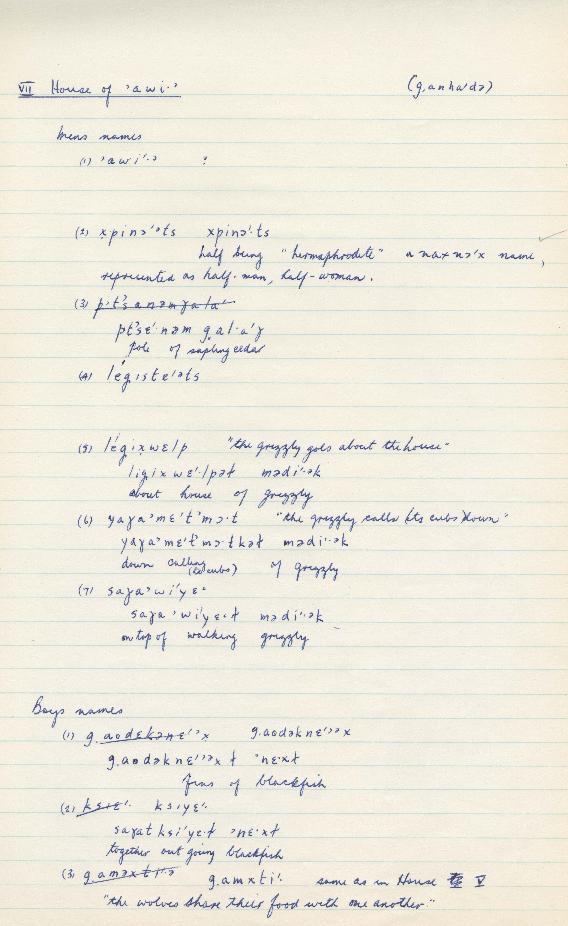 VII House of 'awi·' (g.anha'də)
Mens names
(1) 'awi'·ə ?
(2) xpinɔ'ɔts xpinɔ'·ts
half being "hermaphrodite" a naxnɔ'x name,
represented as half-man, half-woman.
(3)
ptsɛ'·nəm g.al·a'ɣ
pole of sapling cedar
(4) lɛg.iste'əts
(5) lɛ́gixwɛlp "the grizzly goes about the house"
ligixwɛ'·lpəƚ mədi'·ək
about house of grizzly
(6) yaɣa'mɛ't'mɔ·t "the grizzly calls its cubs down"
yaɣa'mɛ't'mɔ·tkəƚ mədi'·ək
down calling (to cubs) of grizzly
(7) saɣa'wi'yɛ·
saɣa'wi'yɛ·ƚ mədi'·ək
on top of walking grizzly
Boys names
(1) g.aodɛkənɛ''x g.aodəknɛ''əx
g.aodəknɛ''əxƚ 'nɛxƚ
fins of blackfish
(2) ksiɛ'· ksiyɛ'·
saɣatksi'yɛ·ƚ 'nɛ·xƚ
together out going blackfish
(3) g.aməxti'·ə g.amxti'· same as in House V
"the wolves share their food with one another"